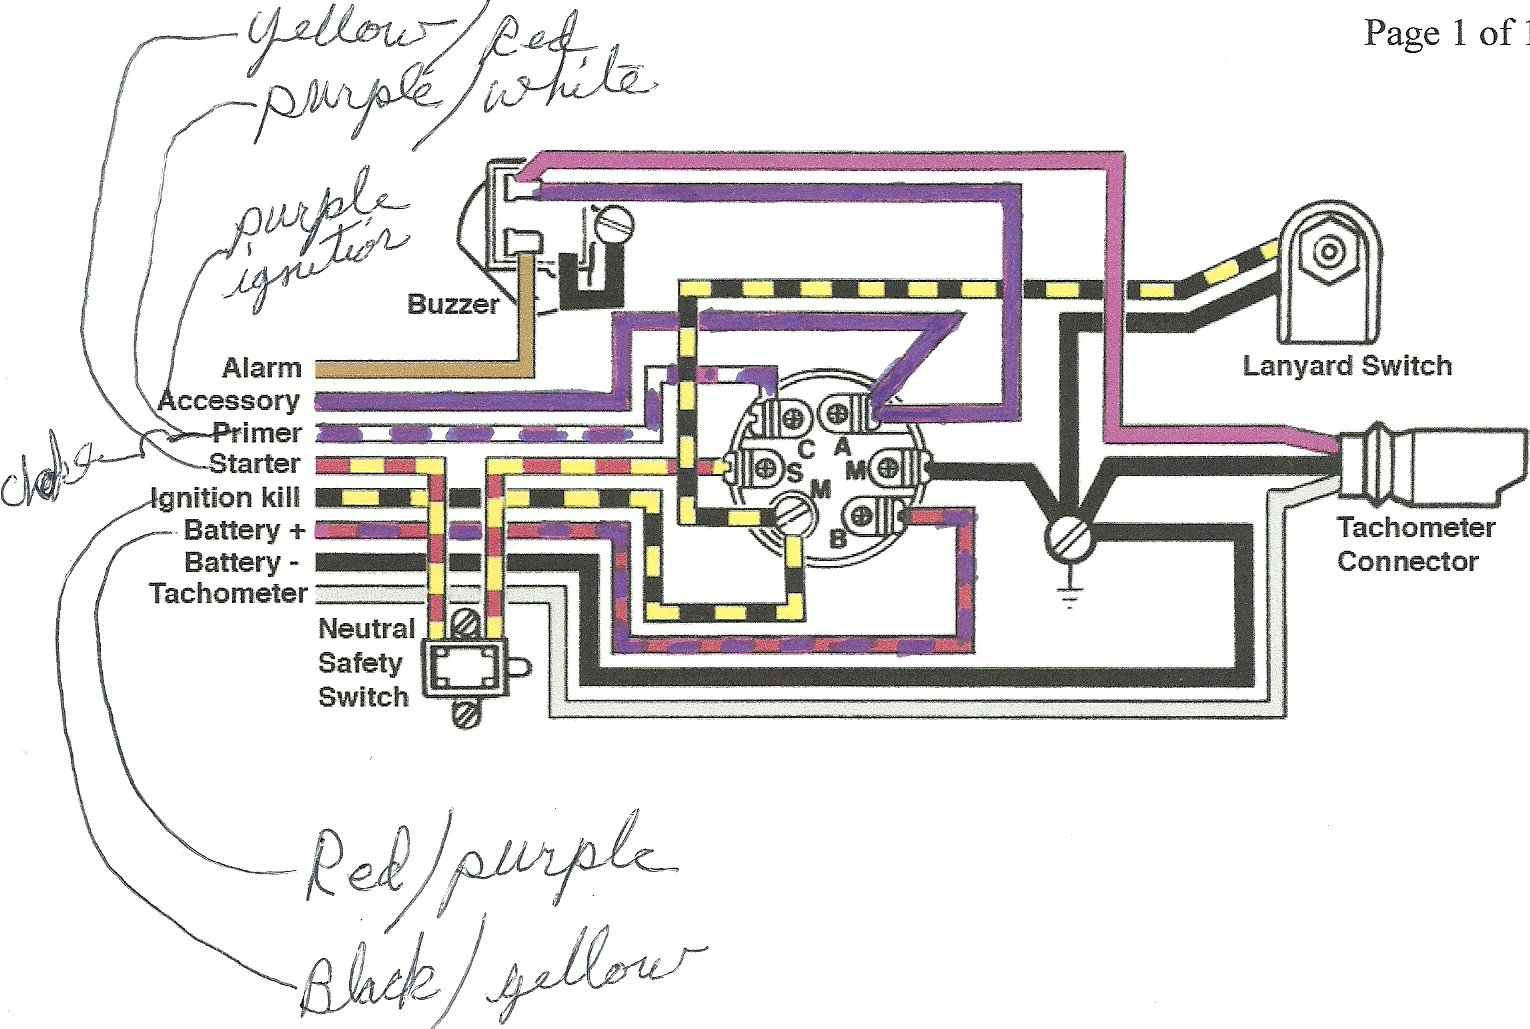 Page 1 of 1
Yellow/Red
purple/white
purple
ignition
Buzzer
Lanyard Switch
Alarm
Accessory
Primer
Starter
Ignition kill
Battery +
Battery -
Tachometer
C A
S M
M
B
Tachometer
Connector
Neutral
Safety
Switch
Red/purple
Black/yellow